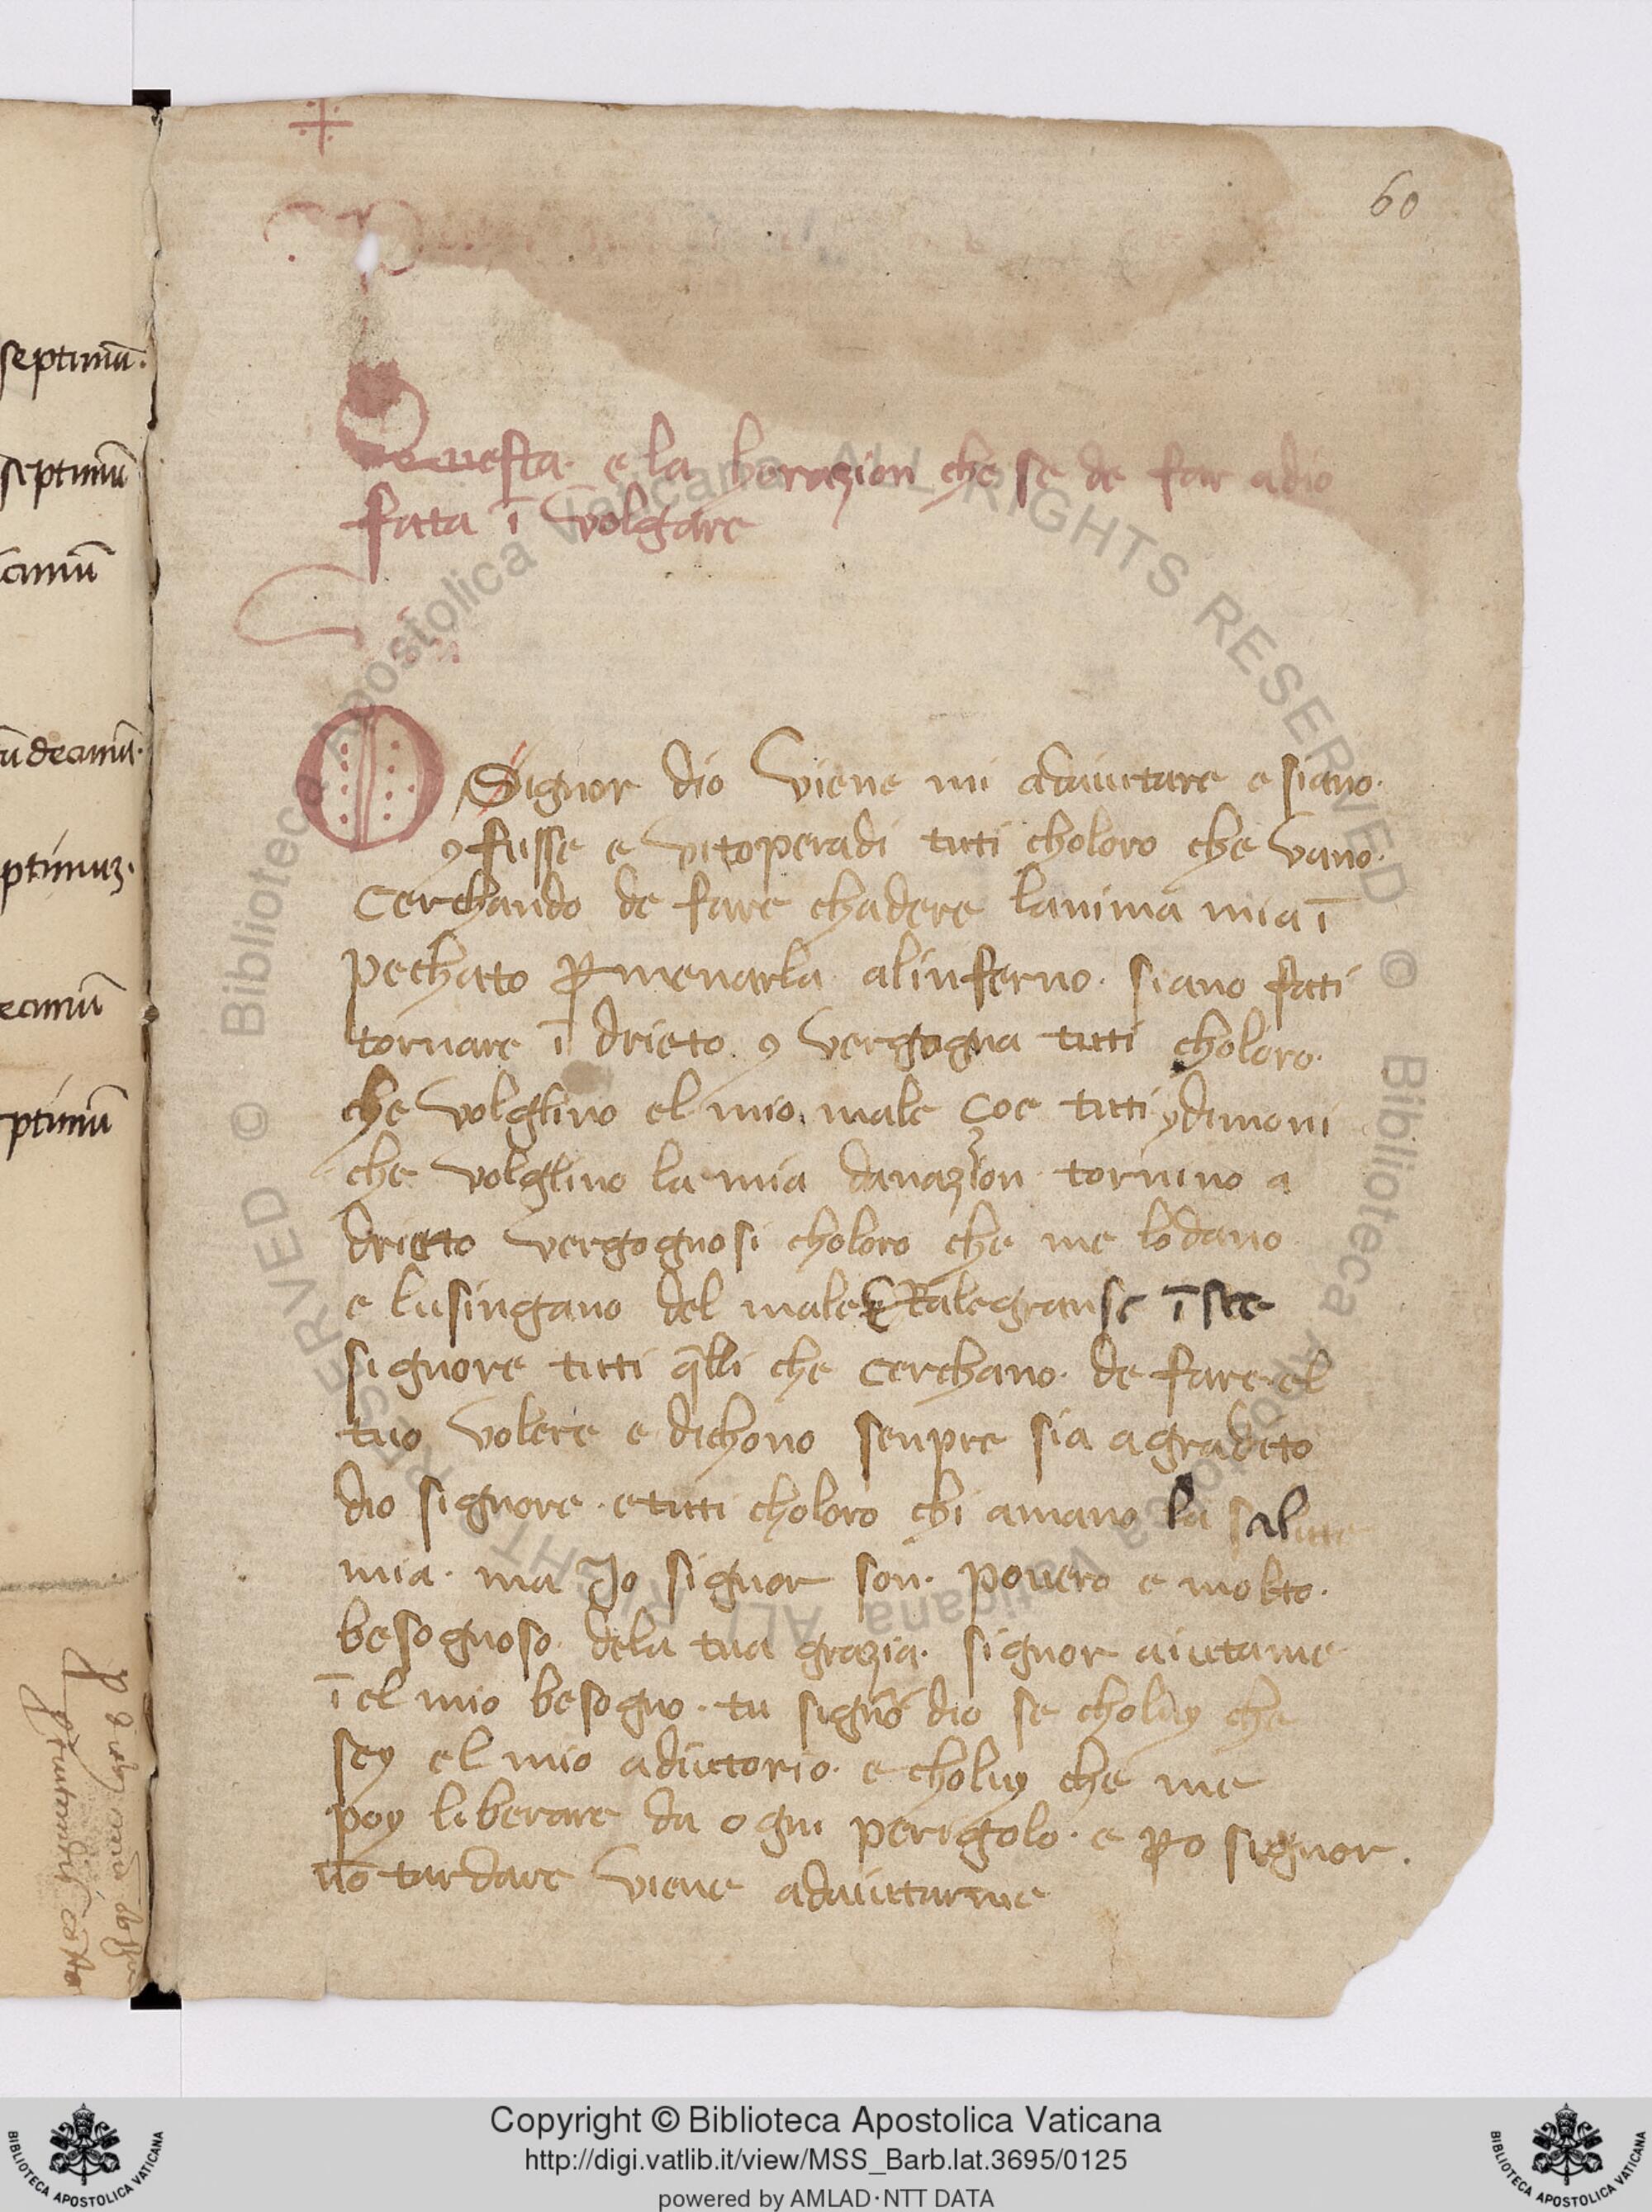 60
Questa e la horazion che se de far adio
fata ī volgare
O Signor dio viene mi adaiutare e siano
ꝯfusse e vitoperadi tuti choloro che vano
cerchando de fare chadere lanima mia ī
pechatto ꝑ menarla alinferno · siano fati
tornare ī drieto ꝯ vergogna tuti choloro
che volglino el mio male Coe tuti ydimoni
che volglino la mia danazion tornino a
drietto vergognosi choloro che me lodano
e lusingano del male E Ralegranse ī tee
signore tutti q̄lli che cerchano · de fare el
tuo volere e dichono senpre sia agradito
dio signore · e tuti choloro chi amano la salute
mia · ma Jo signor son · povero e molto ·
besognoso · dela tua grazia · signor aiutame
ī el mio besogno · tu signor dio se choluy che
sey el mio adiuttorio · e choluy che me
poy liberare da ogni perigolo · e ꝑo signor ·
nō tardare viene adaiuttarme
septimū ·
septimū
cimū
ū decimū ·
ptimuȝ ·
ecimū
ptimū
Copyright © Biblioteca Apostolica Vaticana
http://digi.vatlib.it/view/MSS_Barb.lat.3695/0125
powered by AMLAD·NTT DATA
BIBLIOTECA APOSTOLICA VATICANA
BIBLIOTECA APOSTOLICA VATICANA
© Biblioteca Apostolica Vaticana ALL RIGHTS RESERVED © Biblioteca Apostolica Vaticana ALL RIGHTS RESERVED